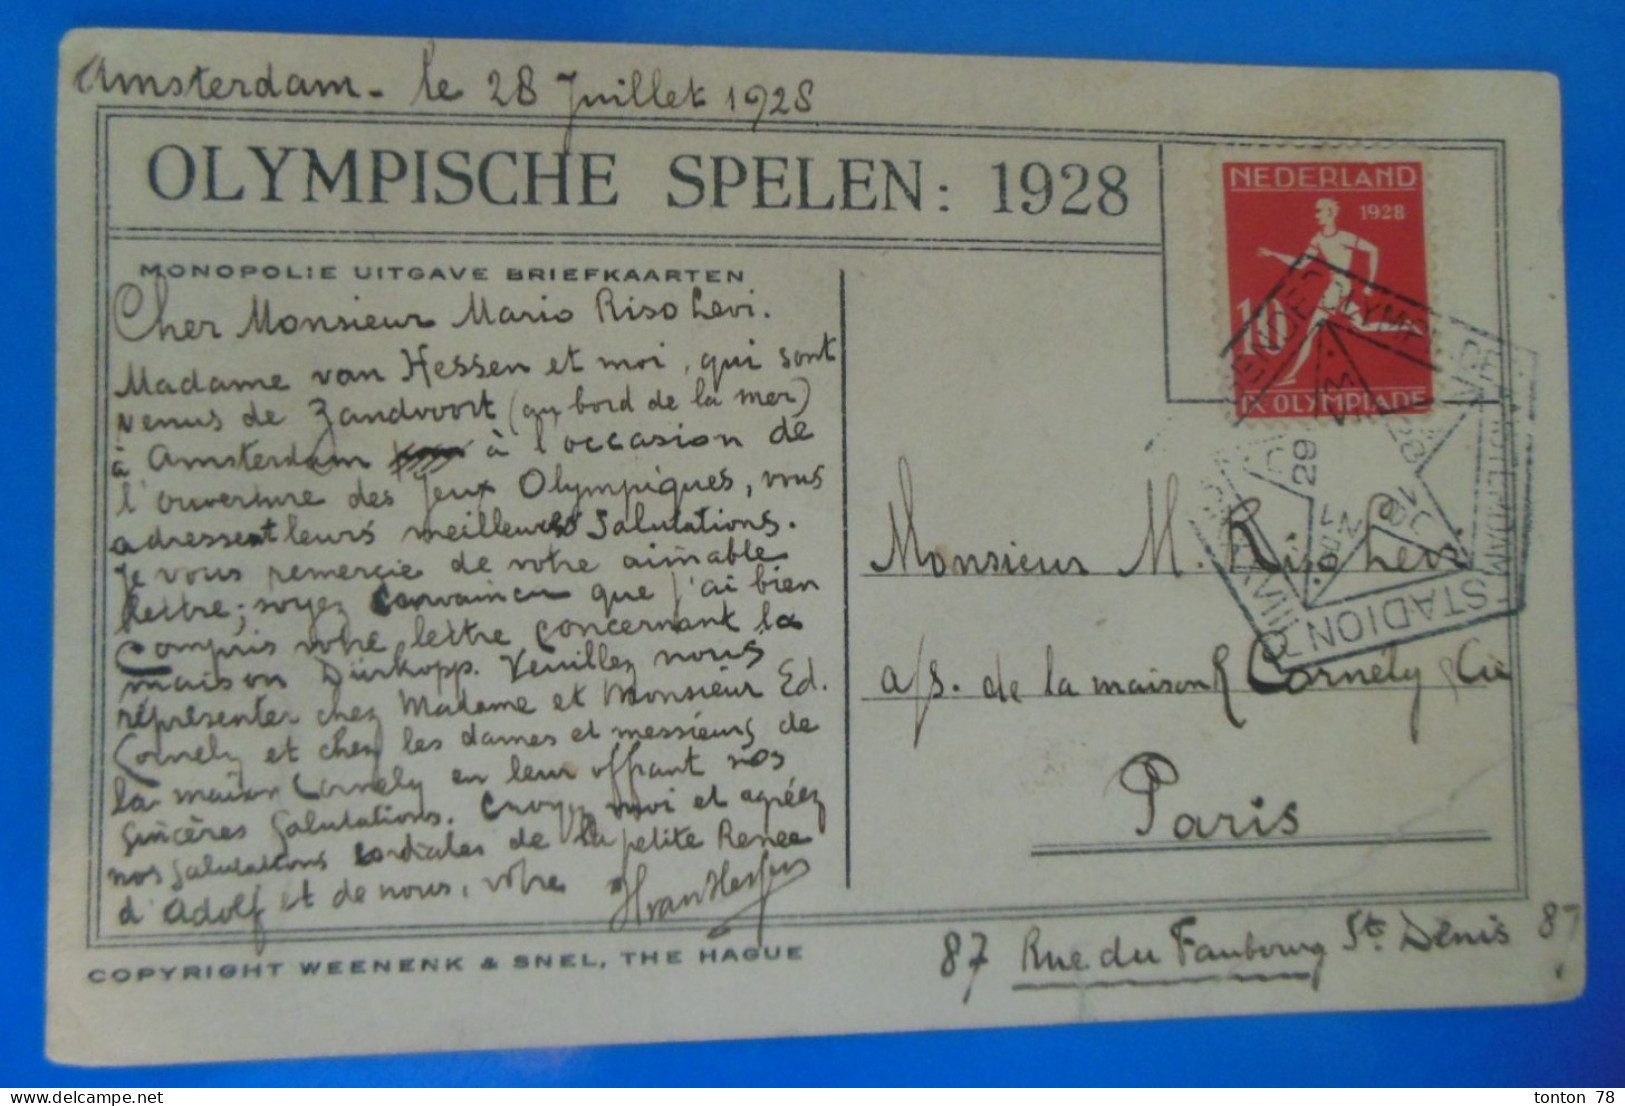 Amsterdam - le 28 Juillet 1928
OLYMPISCHE SPELEN: 1928
MONOPOLIE UITGAVE BRIEFKAARTEN
Cher Monsieur Mario Riso Levi.
Madame van Hessen et moi, qui sont
venus de Zandvoort (au bord de la mer)
à Amsterdam à l'occasion de
l'ouverture des Jeux Olympiques, vous
adressent leurs meilleures Salutations.
Je vous remercie de votre aimable
lettre; soyez convaincu que j'ai bien
compris votre lettre concernant la
maison Dürkopp. Veuillez nous
représenter chez Madame et Monsieur Ed.
Cornely et chez les dames et messieurs de
la maison Cornely en leur offrant nos
sincères Salutations. Croyez moi et agréez
nos salutations cordiales de la petite Renee
d'Adolf et de nous, votre
HvanHessen
COPYRIGHT WEENENK & SNEL, THE HAGUE
NEDERLAND
1928
10
IX OLYMPIADE
29
1928
STADION
AMSTERDAM
Monsieur M. Riso Levi
a/s. de la maison Cornély & Cie
Paris
87 Rue du Faubourg St. Denis 87
tonton 78